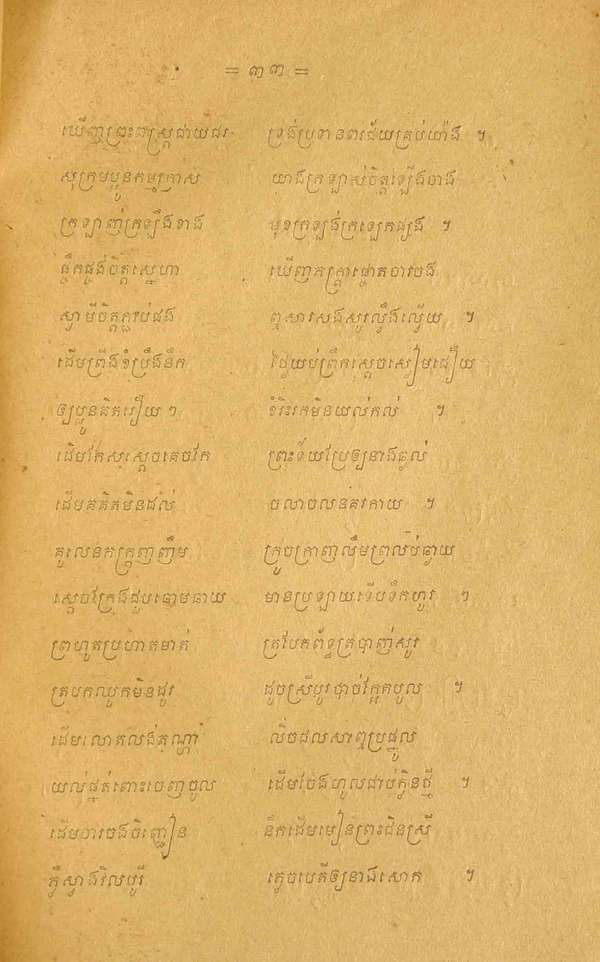 = ៣៣ =
ឃើញព្រះពស្ត្រជាយជរ ទ្រង់ប្រទានពរជ័យគ្រប់យ៉ាង ។
សុក្រមប្អូនកម្មក្រាស យាងក្រឡាស់ចិត្តឡើងចាង
ក្រឡាញ់ក្រឡឹងខាង មុខក្រឡង់ក្រឡេកផ្សង ។
ផ្ចឹកផ្ចង់ចិត្តស្នេហា ឃើញភក្ត្រាផ្ចោតចារចង
ស្វាមីចិត្តភ្ជាប់ផង ឮសារសងសូរល្វឹងល្វើយ ។
ដើមព្រីងខំប្រឹងនឹក ថ្ងៃយប់ព្រឹកស្តេចស្ងៀមជឿយ
ឲ្យប្អូនគិតរឿយ ៗ ខំរិះរកមិនយល់កល់ ។
ដើមកែសស្តេចគេចកែ ព្រះទ័យប្រែឲ្យនាងឆ្ងល់
ដើមគគិតមិនដល់ ចលាចលនគរកាយ ។
គូលេនភក្ត្រញញឹម ក្រូចក្រាញលឹមព្រលប់ឆ្ងាយ
ស្តេចក្រែងជួបចោមឆាយ មានប្រឡាយទើបទឹកហូរ ។
ព្រហូតប្រហោតមាត់ ត្របែកព័ទ្ធត្របាញ់សូរ
ត្របកឈូកមិនដូរ ដូចស្រីបូរផ្ទាច់ក្អែកបូល ។
ដើមលោតលង់តណ្ហា លិចជលសាឮប្រផ្នូល
យល់ផ្នត់ពោះចេញចូល ដើមចែងហូលជាប់ក្លិនថ្មី ។
ដើមចារចងចិញ្ចៀន នឹកដើមមៀនព្រះជិនស្រី
ភ្លឺស្វាងវិលបូរី គេចបេតីឲ្យនាងសោក ។